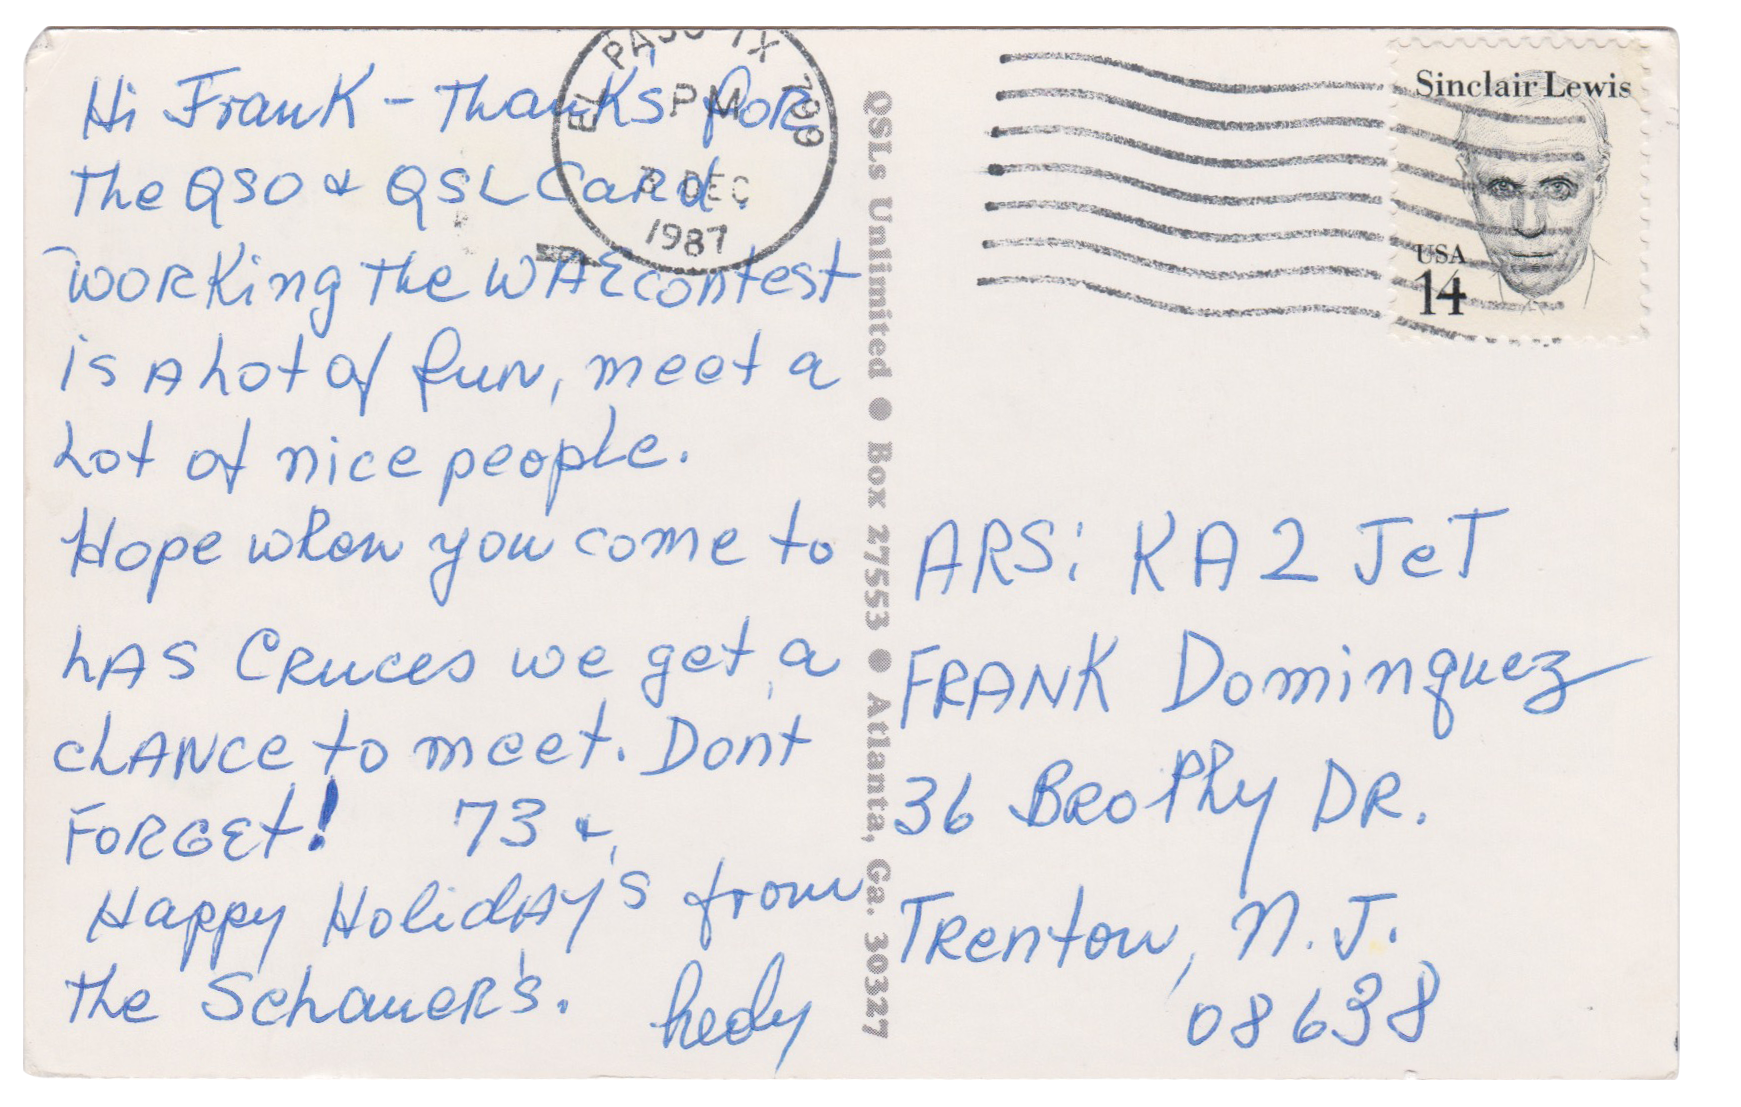 Hi Frank - Thanks for
the QSO & QSL Card.
Working the WAE contest
is a Lot of fun, meet a
Lot of nice people.
Hope when you come to
LAS Cruces we get a
cLANCe to meet. Dont
FORGEt! 73 &
Happy HolidAy's from
the Schauer's. hedy
EL PASO TX 799
PM
3 DEC
1987
QSLs Unlimited ● Box 27553 ● Atlanta, Ga. 30327
Sinclair Lewis
USA
14
ARS: KA2JeT
FRANK Dominquez
36 Brophy DR.
Trenton, N.J.
08638